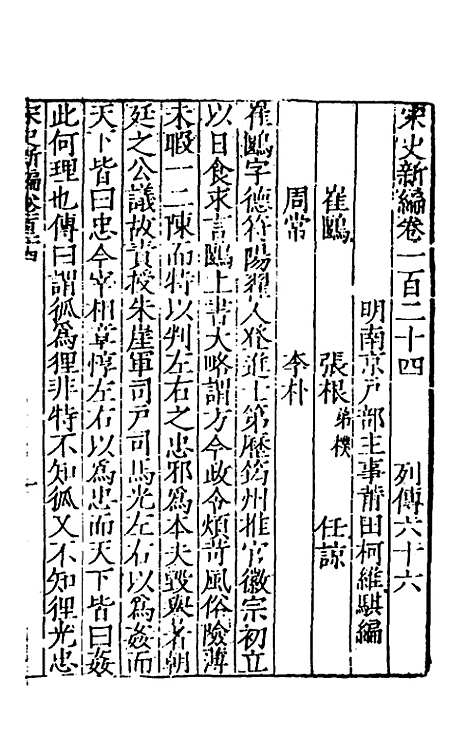 宋史新編卷一百二十四 列傳六十六
明南京戶部主事莆田柯維騏編
崔鶠 張根弟樸 任諒
周常 李朴
崔鶠字德符陽翟人登進士第歷筠州推官徽宗初立
以日食求言鶠上書大略謂方今政令煩苛風俗險薄
未暇一二陳而特以判左右之忠邪爲本夫毀譽者朝
廷之公議故責授朱崖軍司戶司馬光左右以爲姦而
天下皆曰忠今宰相章惇左右以爲忠而天下皆曰姦
此何理也傳曰謂狐爲狸非特不知狐又不知狸光忠
宋史新編卷一百二十四 一